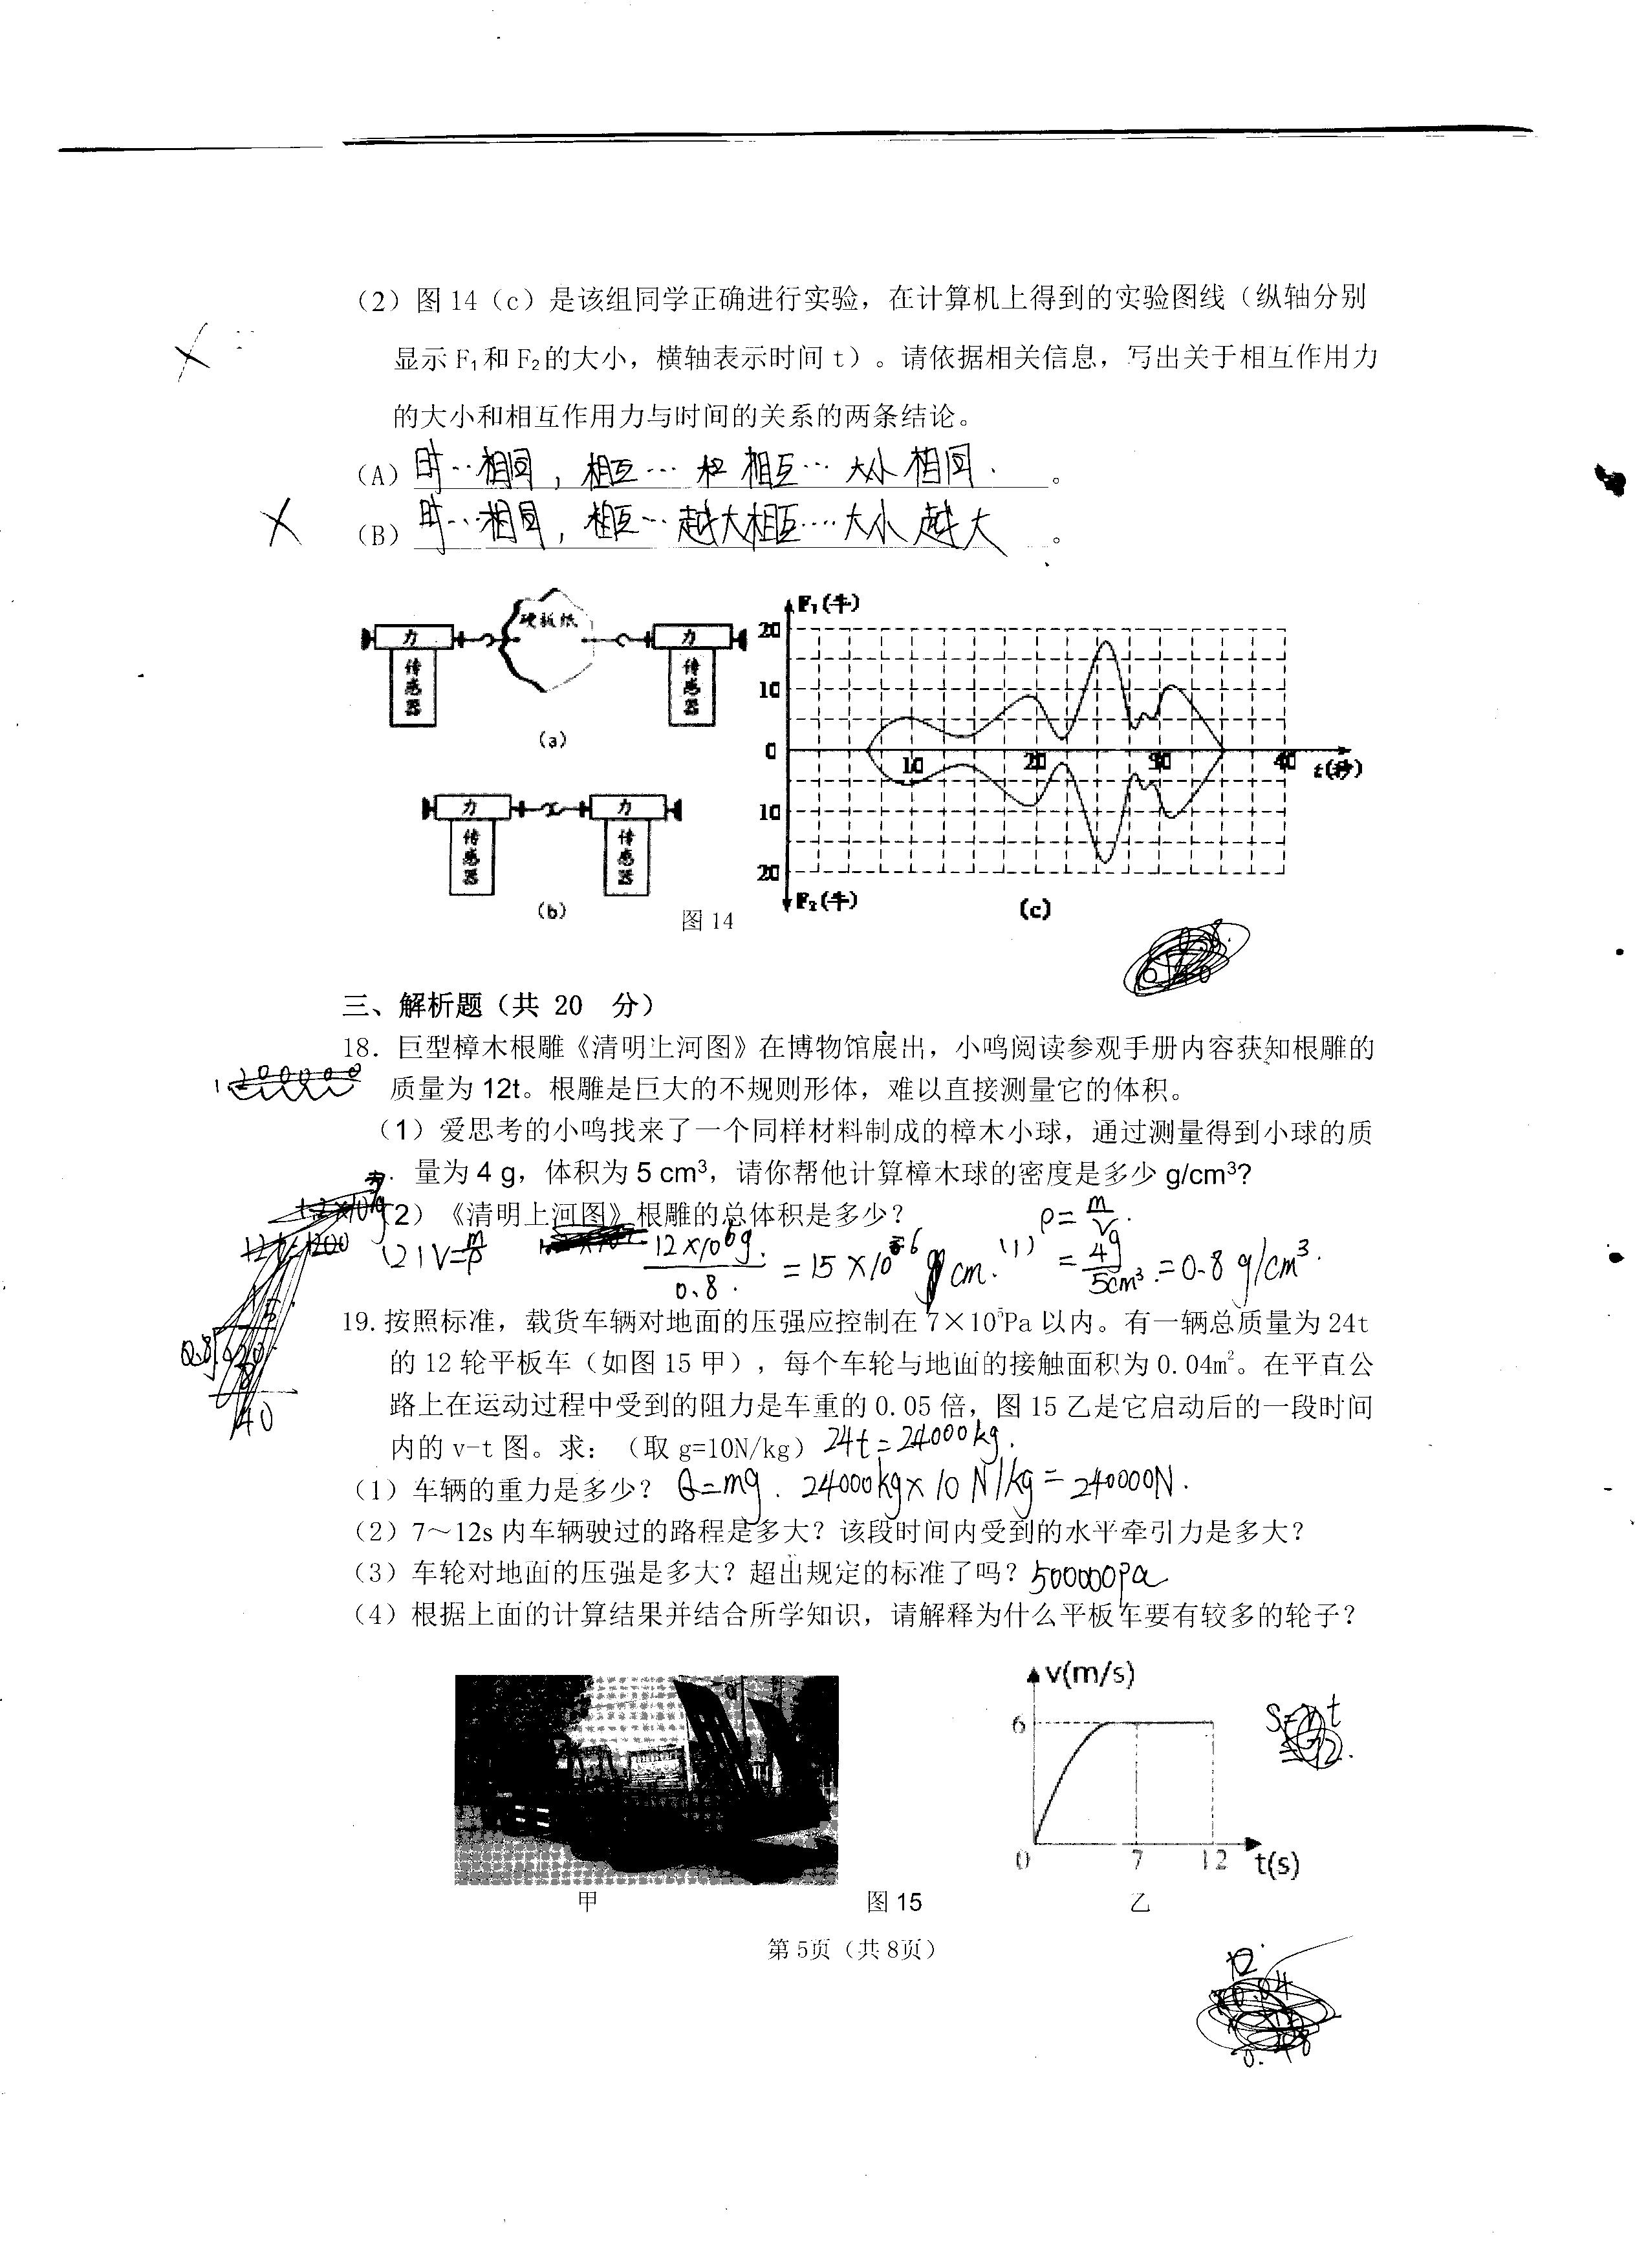 （2）图 14（c）是该组同学正确进行实验，在计算机上得到的实验图线（纵轴分别
显示 F₁和 F₂的大小，横轴表示时间 t）。请依据相关信息，写出关于相互作用力
的大小和相互作用力与时间的关系的两条结论。
（A）时…相同，相互… 和 相互… 大小相同.。
（B）时…相同，相互…越大相互…大小越大。
硬板纸
力 力
传感器 传感器
(a)
力 力
传感器 传感器
(b)
图 14
F₁(牛)
20
10
0
10 20 30 40 t(秒)
10
20
F₂(牛)
(c)
三、解析题（共 20 分）
18. 巨型樟木根雕《清明上河图》在博物馆展出，小鸣阅读参观手册内容获知根雕的
质量为 12t。根雕是巨大的不规则形体，难以直接测量它的体积。
（1）爱思考的小鸣找来了一个同样材料制成的樟木小球，通过测量得到小球的质
量为 4 g，体积为 5 cm³，请你帮他计算樟木球的密度是多少 g/cm³?
（2）《清明上河图》根雕的总体积是多少?
(1) ρ=m/V.
=4g/5cm³.=0.8 g/cm³.
(2) V=m/ρ 12×10⁶g./0.8. =15×10⁶ cm.
19. 按照标准，载货车辆对地面的压强应控制在 7×10⁵Pa 以内。有一辆总质量为 24t
的 12 轮平板车（如图 15 甲），每个车轮与地面的接触面积为 0.04m²。在平直公
路上在运动过程中受到的阻力是车重的 0.05 倍，图 15 乙是它启动后的一段时间
内的 v-t 图。求：（取 g=10N/kg） 24t=24000kg.
（1）车辆的重力是多少? G=mg. 24000kg×10 N/kg=240000N.
（2）7～12s 内车辆驶过的路程是多大? 该段时间内受到的水平牵引力是多大?
（3）车轮对地面的压强是多大? 超出规定的标准了吗? 500000pa
（4）根据上面的计算结果并结合所学知识，请解释为什么平板车要有较多的轮子?
v(m/s)
6
0 7 12 t(s)
甲 图 15 乙
第 5页（共 8页）